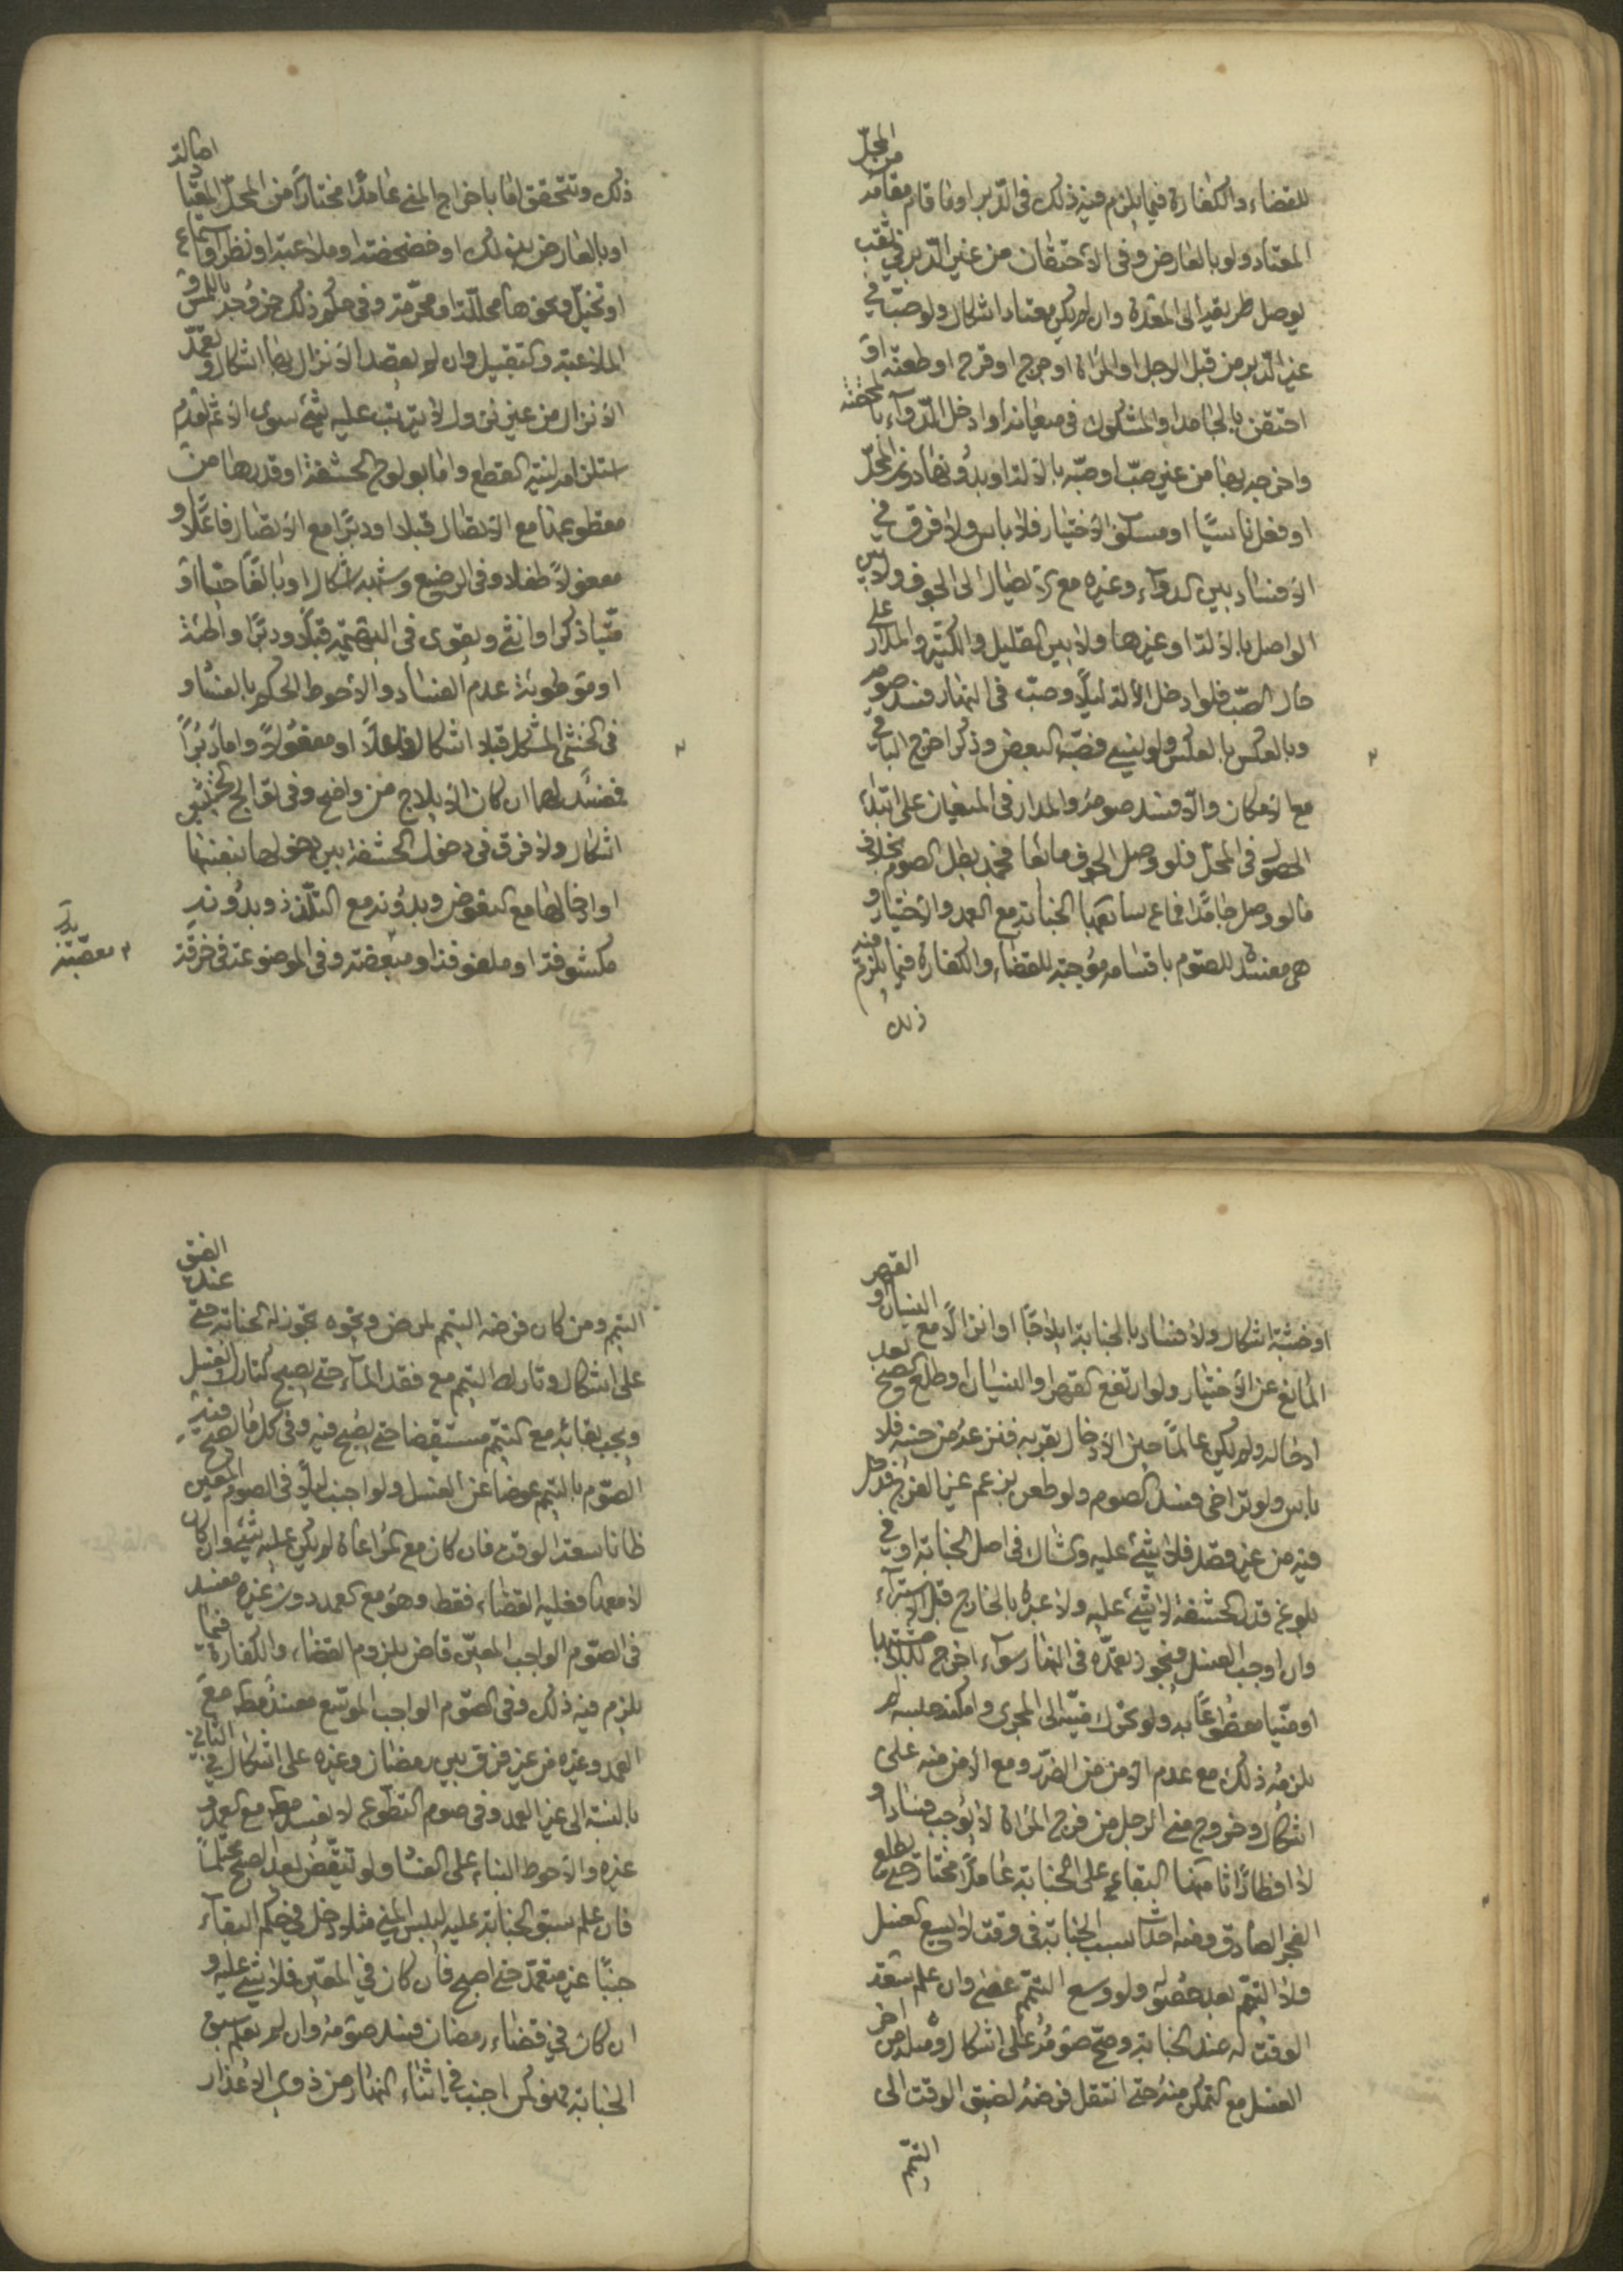 للقضاء والكفارة فيما يلزم فيه ذلك فى الدبر او ما قام مقامه من المحل
المعتاد ولو بالعارض وفى الاحتقان من غير الدبر فى ثقب
يوصل طريقه الى المعدة وان لم يكن معتادا اشكال ولو صبه في
غير الدبر من قبل الرجل او المراة او جرح او قرح او طعنه او
احتقن بالجامد او المشكوك فى ميعانه او ادخل الدواء بالمحقنة
واخرجه بها من غير صب او صبه بالالة او بدونها دون المحل
او فعل ناسيا او مسلوب الاختيار فلا باس ولا فرق في
الافساد بين الدواء وغيره مع الايصال الى الجوف ولا بين
الواصل بالالة او غيرها ولا بين القليل والكثير والمدار على
حال الصب فلو ادخل الالة ليلا وصب فى النهار فسد صومه
وبالعكس بالعكس ولو نسي فصب البعض وذكر اخرج الباقي
مع الامكان والا فسد صومه والمدار فى الميعان على ابتداء
الحصول فى المحل فلو وصل الجوف مائعا فجمد بطل الصوم بخلاف
ما لو وصل جامدا فماع سابعها الجنابة مع العمد والاختيار و
هى مفسدة للصوم باقسامه موجبة للقضاء والكفارة فيما يلزم فيه
ذلك
ذلك وتتحقق اما باخراج المني عامدا مختارا من المحل المعتاد اصالة
او بالعارض بدلك او خضخضة او ملاعبة او نظر او سماع
او تخيل ونحوها محللة او محرمة وفى حكم ذلك خروجه باللمس و
الملاعبة والتقبيل وان لم يقصد الانزال بها اشكال وتعمد
الانزال من غير نزول لا يترتب عليه شئ سوى الاثم لعدم
استلزامه لنية القطع واما بولوج الحشفة او قدرها من
مقطوعها مع الاتصال قبلا او دبرا مع الاتصال فاعلا و
مفعولا طفلا وفى الرضيع وشبهه اشكال او بالغا حيا او
ميتا ذكرا او انثى ويقوى فى البهيمة قبلا ودبرا واطئة
او موطوئة عدم الفساد والاحوط الحكم بالفساد و
فى الخنثى المشكل قبلا اشكال فاعلا او مفعولا واما دبرا
فيفسد لهما ان كان الايلاج من واضح وفى توالج الخنثيين
اشكال ولا فرق فى دخول الحشفة بين دخولها بنفسها
او ادخالها مع النعوض وبدونه مع التلذذ وبدونه
مكشوفة او ملفوفة او مبعضة وفى الموضوعة فى خرقة
معصبة
او خشبة اشكال ولا فساد بالجنابة ايلاجا او انزالا مع النسيان او القهر
المانع عن الاختيار ولو ارتفع القهر او النسيان وطلع الصبح بعد
ادخاله ولم يكن عالما حين الادخال بقربه فنزعه من حينه فلا
باس ولو تراخى فسد الصوم ولو طعن بزعم غير الفرج فدخل
فيه من غير قصد فلا شئ عليه والشاك فى اصل الجنابة او في
بلوغ قدر الحشفة لا شئ عليه ولا عبرة بالخارج قبل الاستبراء
وان اوجب الغسل فيجوز تعمده فى النهار سواء اخرج بللا مشتبها
او منيا مقطوعا به ولو تحرك منيه الى المجرى وامكنه حبسه لم
يلزمه ذلك مع عدم الامن من الضرر ومع الامن منه على
اشكال وخروج مني الرجل من فرج المراة لا يوجب فسادا و
لا افطارا ثامنها البقاء على الجنابة عامدا مختارا حتى يطلع
الفجر الصادق ومنه احداث سبب الجنابة فى وقت لا يسع الغسل
ولا التيمم بعد حصوله ولو وسع التيمم عصى وان علم سعة
الوقت له عند الجنابة وصح صومه على اشكال ومثله من اخر
الغسل مع التمكن منه حتى انتقل فرضه لضيق الوقت الى
التيمم
التيمم ومن كان فرضه التيمم لمرض ونحوه تجوز له الجنابة حتى عند الضيق
على اشكال وتارك التيمم مع فقد الماء حتى يصبح كتارك الغسل
ويجب بقائه مع التيمم مستيقضا حتى يصبح فيه وفى كل ما يصح فيه
الصوم بالتيمم عوضا عن الغسل ولو اجنب ليلا فى الصوم المعين
ظانا سعة الوقت فان كان مع المراعاة لم يكن عليه شئ وان كان
لا معها فعليه القضاء فقط وهو مع العمد دون غيره مفسد
فى الصوم الواجب المعين قاض بلزوم القضاء والكفارة فيما
يلزم فيه ذلك وفى الصوم الواجب الموسع مفسد مطلقا مع
العمد وغيره من غير فرق بين رمضان وغيره على اشكال فى الثاني
بالنسبة الى غير العمد وفى صوم التطوع لا يفسد مطلقا مع العمد و
غيره والاحوط البناء على الفساد ولو تيقض بعد الصبح محتلما
فان علم سبق الجنابة عليه ليبس المني مثلا دخل في حكم البقاء
جنبا غير متعمد حتى اصبح فان كان في المعين فلا شئ عليه و
ان كان في قضاء رمضان فسد صومه وان لم يعلم سبق
الجنابة فهو كمن اجنب في اثناء النهار من ذوى الاعذار